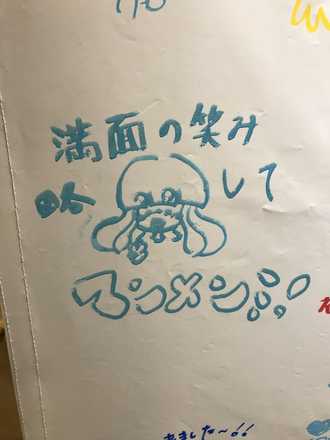 満面の笑み
略して
マンメン!
ました〜!!